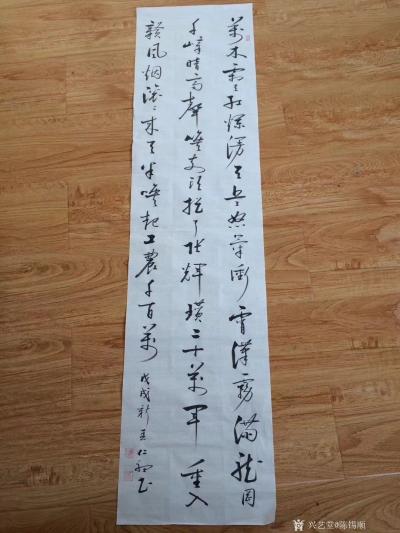 萬木霜天红爛漫天兵怒氣衝霄漢霧滿龍岡
千嶂暗齊聲喚前頭捉了张輝瓚二十萬軍重入
贛風烟滚〻来天半喚起工農千百萬
戊戌 王仁 书
兴艺堂@陈锡顺